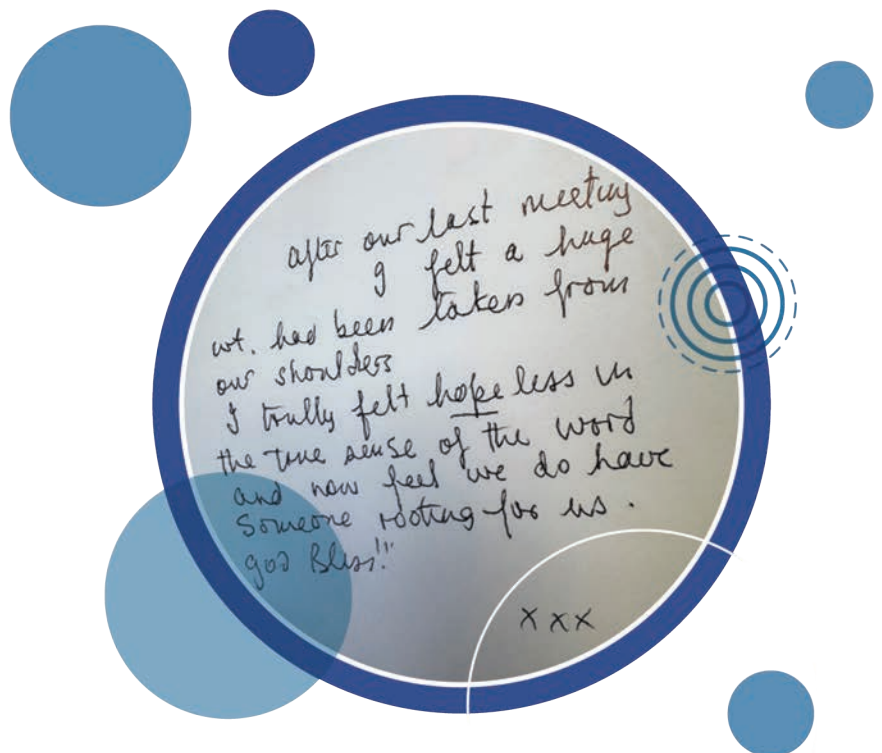 after our last meeting
I felt a huge
wt. had been taken from
our shoulders
I trully felt hopeless in
the true sense of the word
and now feel we do have
Someone rooting for us .
god Bless!!"
xxx